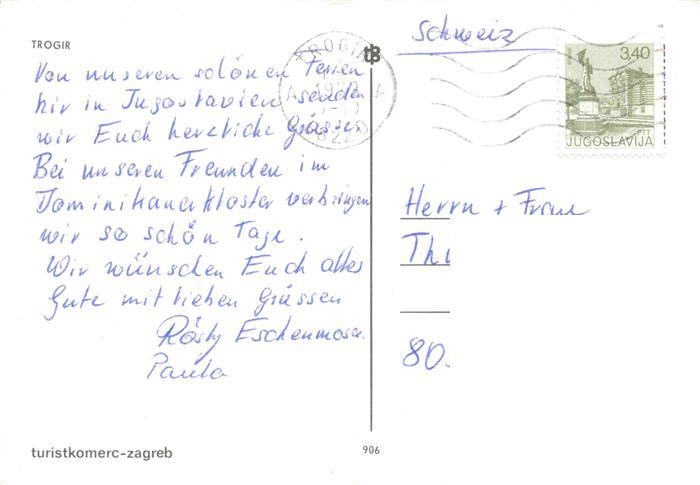 TROGIR
Von unseren schönen Ferien
hir in Jugoslavien senden
wir Euch herzliche Grüsse.
Bei unseren Freunden im
Dominikanerkloster verbringen
wir so schön Tage.
Wir wünschen Euch alles
Gute mit lieben Grüssen
Rösly Eschenmoser
Paula
turistkomerc-zagreb
906
tB
TROGIR
Schweiz
3,40
PTT
JUGOSLAVIJA
Herrn + Frau
Thi
80.